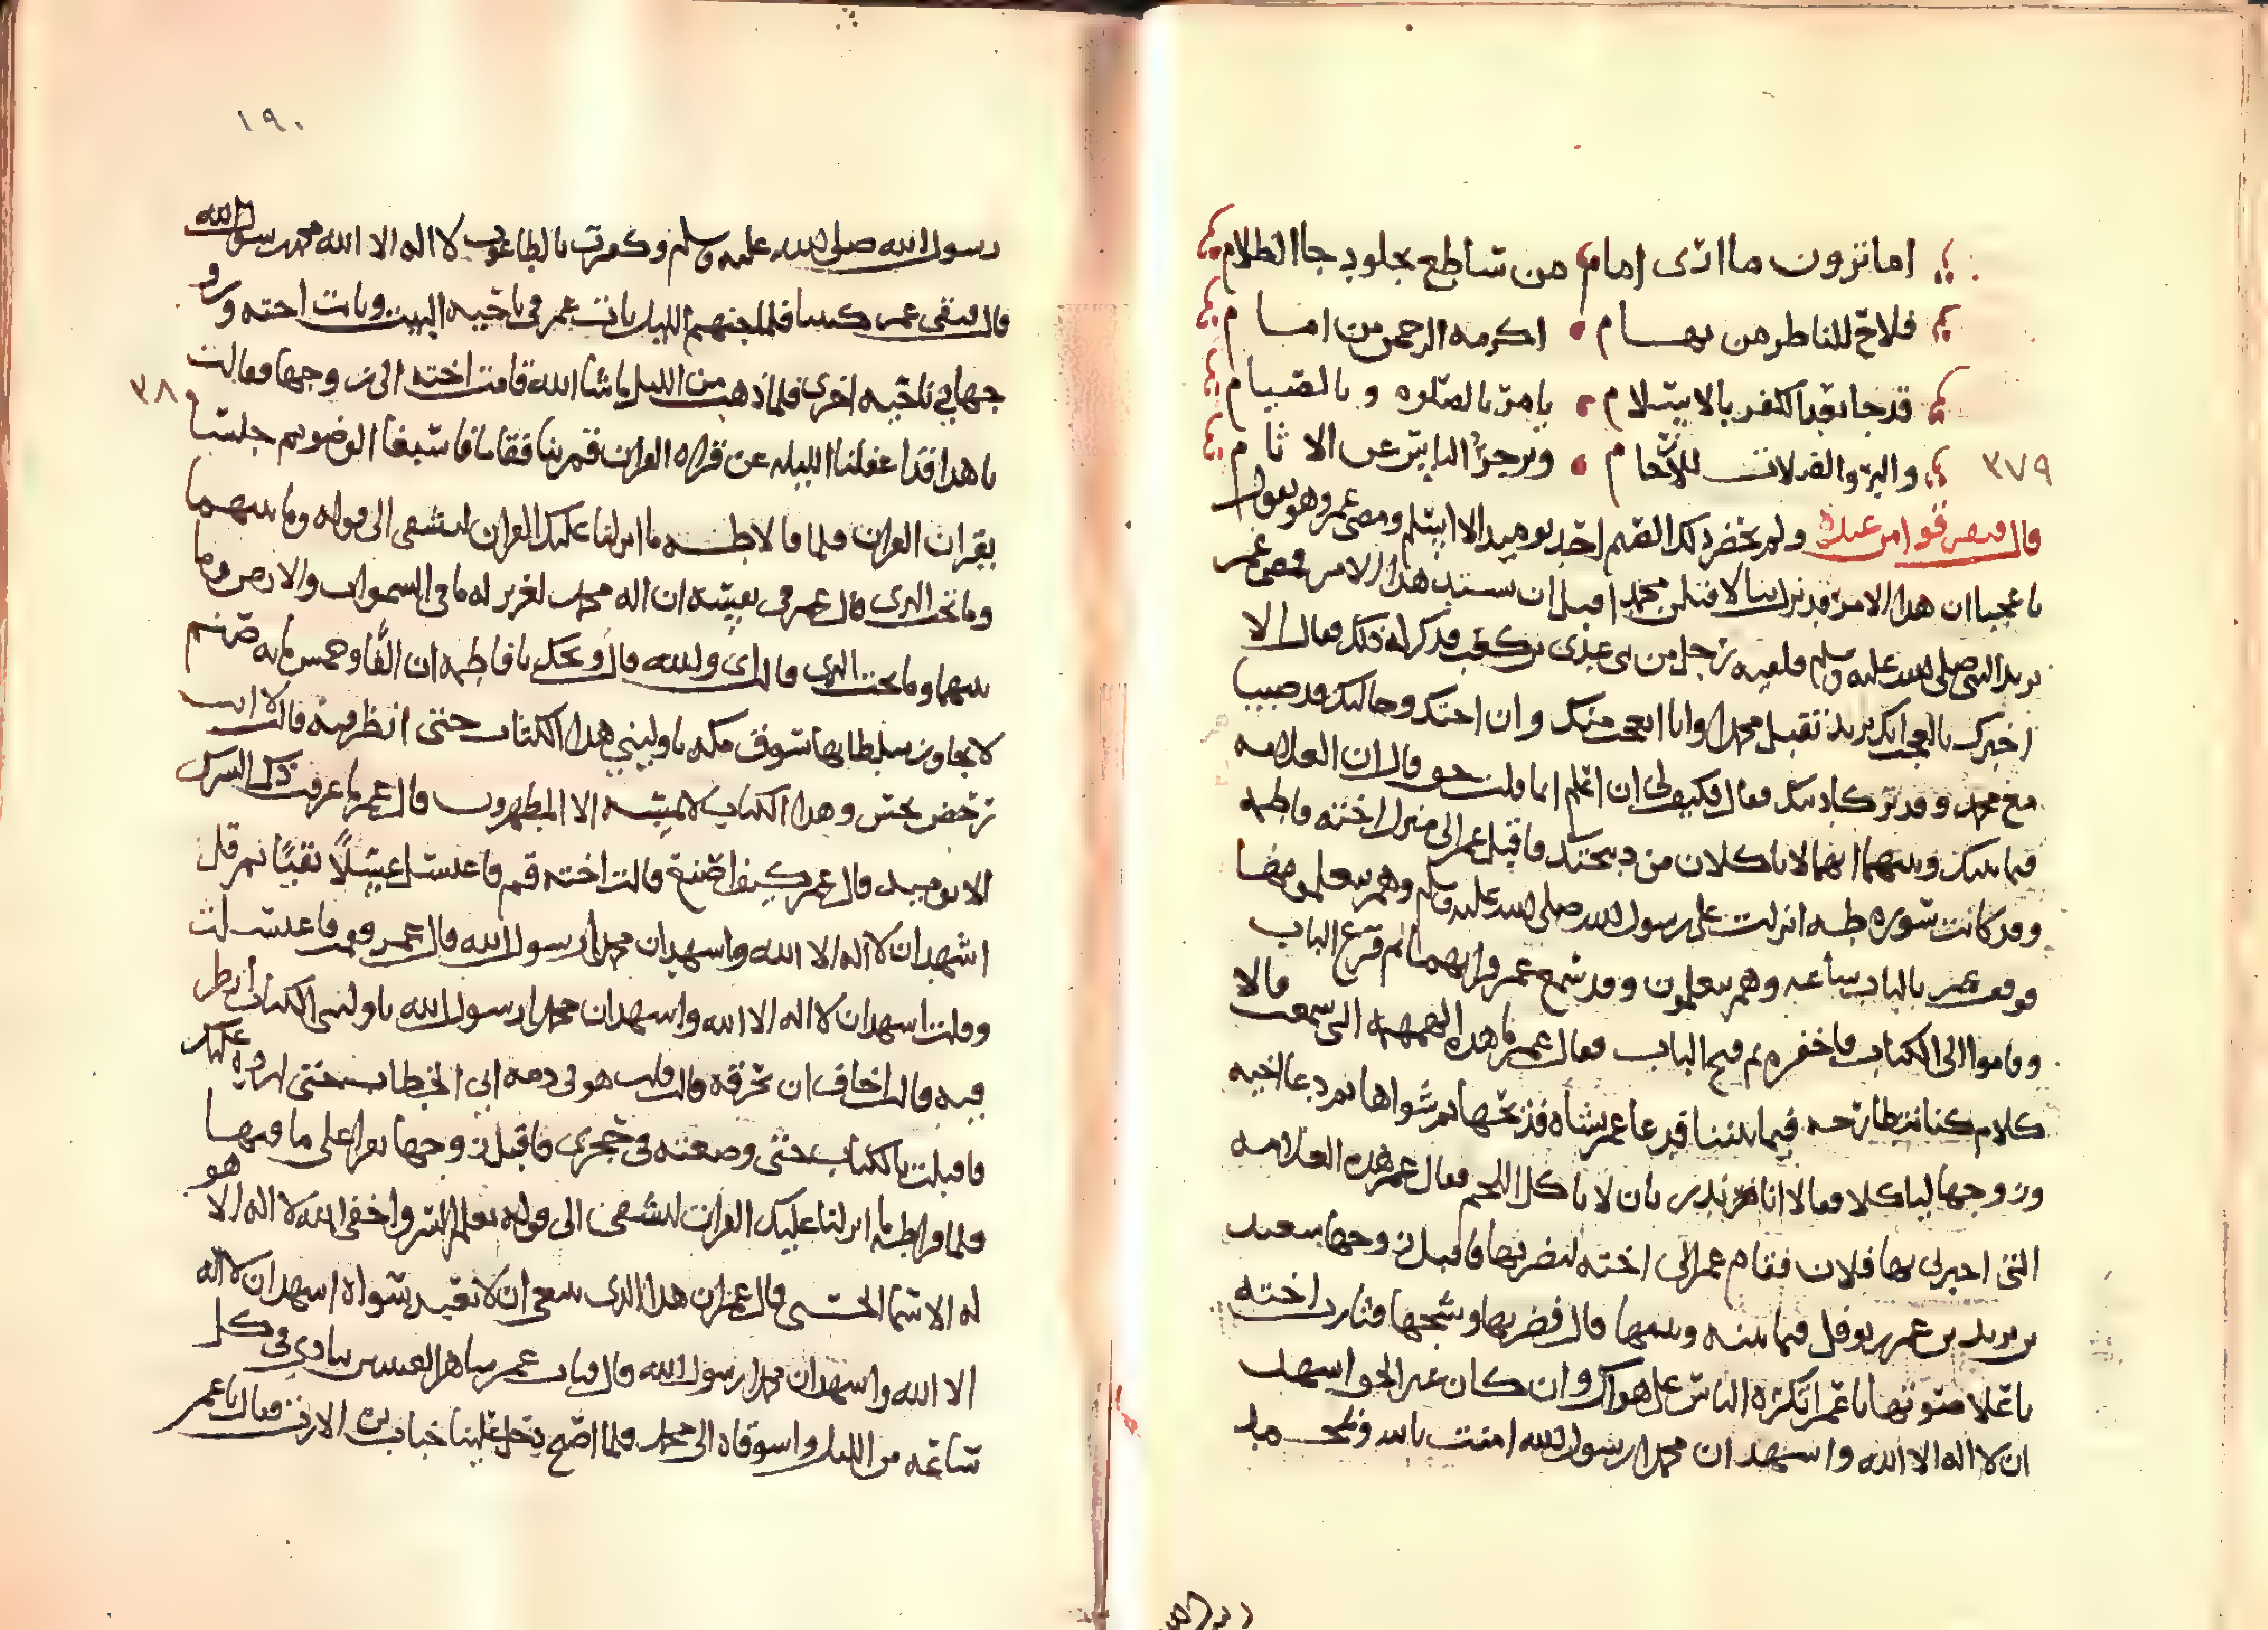 اما ترون ما ارى امام من ساطع يجلو دجا الظلام
فلاح للناظر من تهام اكرمه الرحمن من امام
قد جا بعد الكفر بالاسلام يامر بالصلوه و بالصيام
٣٧٩ والبر والصلات للارحام ويزجر الناس عن الاثام
قال فتفرقوا من عنده ولم يحضر ذلك الصنم احد يوميد الا اسلم ومضى عمر وهو يقول
يا عجبا ان هذا الامر قد بدا لاقتلن محمد اقبل ان هذا الامر فمضى عمر
يريد النبي صلى الله عليه وسلم فلقيه رجل من بني عدي بن كعب فذكر له ذلك فقال الا
اخبرك بالعجب انك تريد تقتل محمدا وانا اعجب منك وان اختك وختنك قد صبيا
مع محمد وقد تركا دينك فقال فكيف لي ان اعلم انما قلت حق قال ان العلامه
فيما بينك وبينهما انهما لا ياكلان من ذبيحتك فاقبل عمر الى منزل اخته فاطمه
وقد كانت سوره طه انزلت على رسول الله صلى الله عليه وسلم وهم يتعلمونها
فوقف عمر بالباب ساعه وهم يتعلمون وقد سمع عمر قراتهما ثم قرع الباب
وقاموا الى الكتاب فاخفره ثم فتح الباب فقال عمر ما هذه الهمهمه التي سمعت قالا
كلام كنا نتطارحه فيما بيننا فدعا عمر بشاه فذبحها ثم شواها ثم دعا اخته
وزوجها لياكلا فقالا انا نذر بان لا ناكل اللحم فقال عمر هذه العلامه
التي اخبرني بها فلان فقام عمر الى اخته ليضربها فاقبل زوجها سعيد
بن زيد بن عمر بن نوفل فيما بينه وبينها قال فضربها وشجها فنادت اخته
يا عمر اتكره الناس على هواك وان كان غير الحق اشهد
ان لا اله الا الله واشهد ان محمدا رسول الله امنت بالله وبمحمد
١٩٠
رسول الله صلى الله عليه وسلم وكفرت بالطاغوت لا اله الا الله محمد رسول الله
قال فبقى عمر كيبا فلما جنهم الليل بات عمر في ناحيه البيت وبات اخته وزو
جها في ناحيه اخرى فلما ذهب من الليل ما شا الله قامت اخته الى زوجها فقالت ٣٨٠
يا هذا قد اغفلنا الليله عن قراه القران فقم بنا فقاما فاسبغا الوضو ثم جلسا
يقران القران فلما قالا طه ما انزلنا عليك القران لتشقى الى قوله وما بينهما
وما تحت الثرى قال عمر في نفسه ان اله محمد لعزيز له ما في السموات والارض وما
بينهما وما تحت الثرى قالت اي والله قال ويحك يا فاطمه ان الفا وخمس مايه صنم
لا يجاوز سلطانها سوق مكه ناوليني هذا الكتاب حتى انظر فيه قالت لا انت
رخص نجس وهذا الكتاب لا يمسه الا المطهرون قال عمر ما عرفت ذل الشرك
الا يوميد قال عمر كيف اصنع قالت اخته قم فاغتسل اغتسلا نقيا ثم قل
اشهد ان لا اله الا الله واشهد ان محمدا رسول الله قال عمر فقمت فاغتسلت
وقلت اشهد ان لا اله الا الله واشهد ان محمدا رسول الله ناوليني الكتاب انظر
فيه قالت اخاف ان تحرقه قال قلت هو في ذمه ابن الخطاب حتى ارده عليك
فاقبلت بالكتاب حتى وضعته في حجري فاقبل زوجها يقرا على ما فيها
فلما قرا طه ما انزلنا عليك القران لتشقى الى قوله يعلم السر واخفى الله لا اله الا هو
له الاسما الحسنى قال عمر ان هذا الذي ينبغي ان لا نعبد سواه اشهد ان لا اله
الا الله واشهد ان محمدا رسول الله قال فبات عمر ساهر العينين ينادي في كل
ساعه من الليل واشوقاه الى محمد فلما اصبح دخل علينا خباب بن الارت فقال يا عمر